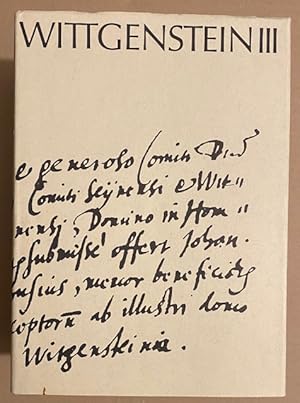 WITTGENSTEIN III
e generoso Comiti Dño
Comiti Seijnensi & Wit=
nensi, Domino in Hom=
submissè offert Johan.
usius, memor beneficiorũ
ceptorũ ab illustri domo
Witgensteinia.